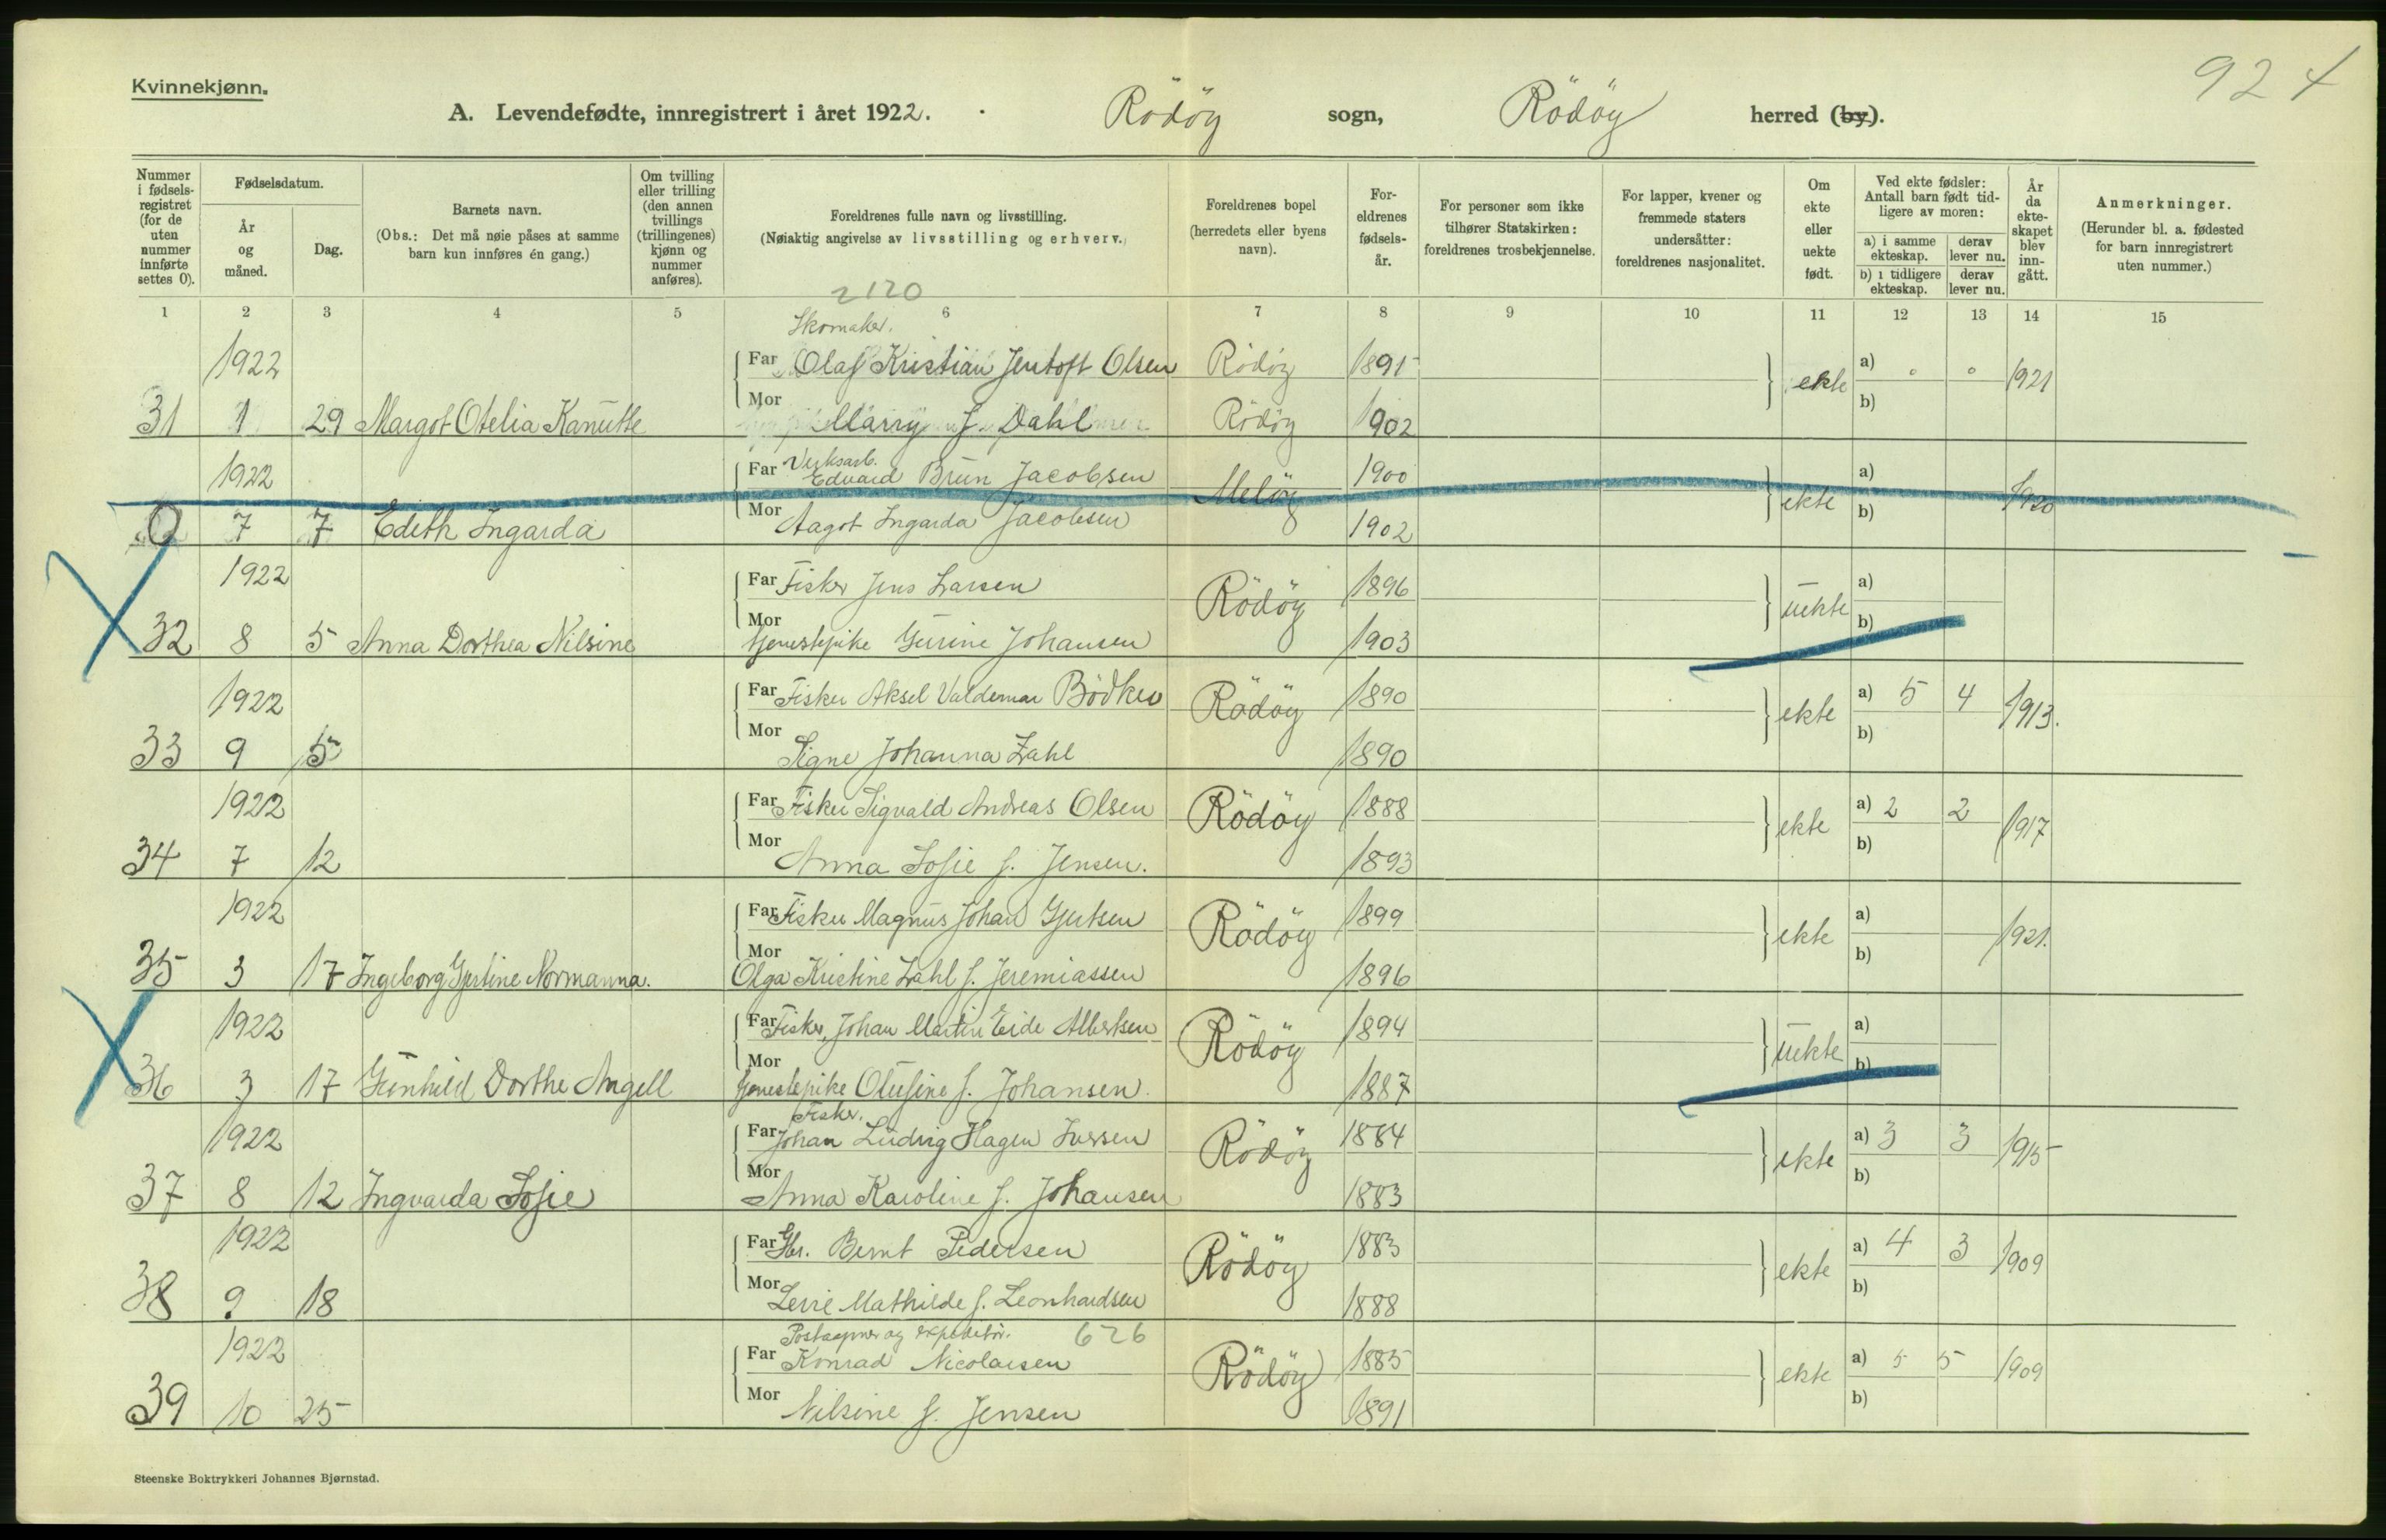 924
Kvinnekjønn.
A. Levendefødte, innregistrert i året 1922. Rödöy sogn, Rödöy herred (by).
Nummer i fødsels-registret (for de uten nummer innførte settes 0).
Fødselsdatum.
År og måned.
Dag.
Barnets navn.
(Obs.: Det må nøie påses at samme barn kun innføres én gang.)
Om tvilling eller trilling (den annen tvillings (trillingenes) kjønn og nummer anføres).
Foreldrenes fulle navn og livsstilling.
(Nøiaktig angivelse av livsstilling og erhverv.)
Foreldrenes bopel (herredets eller byens navn).
For-eldrenes fødsels-år.
For personer som ikke tilhører Statskirken: foreldrenes trosbekjennelse.
For lapper, kvener og fremmede staters undersåtter: foreldrenes nasjonalitet.
Om ekte eller uekte født.
Ved ekte fødsler: Antall barn født tid-ligere av moren:
a) i samme ekteskap.
derav lever nu.
b) i tidligere ekteskap.
derav lever nu.
År da ekte-skapet blev inn-gått.
Anmerkninger.
(Herunder bl. a. fødested for barn innregistrert uten nummer.)
2120
1 2 3 4 5 6 7 8 9 10 11 12 13 14 15
Skomaker.
1922 Far Olaf Kristian Jentoft Olsen Rödöy 1891 ekte a) 0 0 1921
31 1 29 Margot Otelia Kanutte Mor Marry f. Dahl Rödöy 1902 b)
Verksarb.
1922 Far Edvard Brun Jacobsen Melöy 1900 ekte a) 1920
0 7 7 Edith Ingarda Mor Aagot Ingarda Jacobsen 1902 b)
1922 Far Fisker Jens Larsen Rödöy 1896 uekte a)
32 8 5 Anna Dorthea Nilsine Mor tjenestepike Gurine Johansen 1903 b)
1922 Far Fisker Aksel Valdemar Bödker Rödöy 1890 ekte a) 5 4 1913.
33 9 5 Mor Signe Johanna Zahl 1890 b)
1922 Far Fisker Sigvald Andreas Olsen Rödöy 1888 ekte a) 2 2 1917
34 7 12 Mor Anna Sofie f. Jensen. 1893 b)
1922 Far Fisker Magnus Johan Gjertsen Rödöy 1899 ekte a) 1921.
35 3 17 Ingeborg Gjertine Normanna. Mor Olga Kristine Zahl f. Jeremiassen 1896 b)
1922 Far Fisker, Johan Martin Eide Albertsen Rödöy 1894 uekte a)
36 3 17 Gunhild Dorthe Angell Mor tjenestepike Olufine f. Johansen. 1887 b)
Fisker.
1922 Far Johan Ludvig Hagen Iversen Rödöy 1884 ekte a) 3 3 1915
37 8 12 Ingvarda Sofie Mor Anna Karoline f. Johansen 1883 b)
1922 Far Gbr. Bernt Pedersen Rödöy 1883 ekte a) 4 3 1909
38 9 18 Mor Mathilde f. Leonhardsen 1888 b)
Postaapner og expeditör. 626
1922 Far Konrad Nicolaisen Rödöy 1885 ekte a) 5 5 1909
39 10 25 Mor Nilsine f. Jensen 1891 b)
Steenske Boktrykkeri Johannes Bjørnstad.